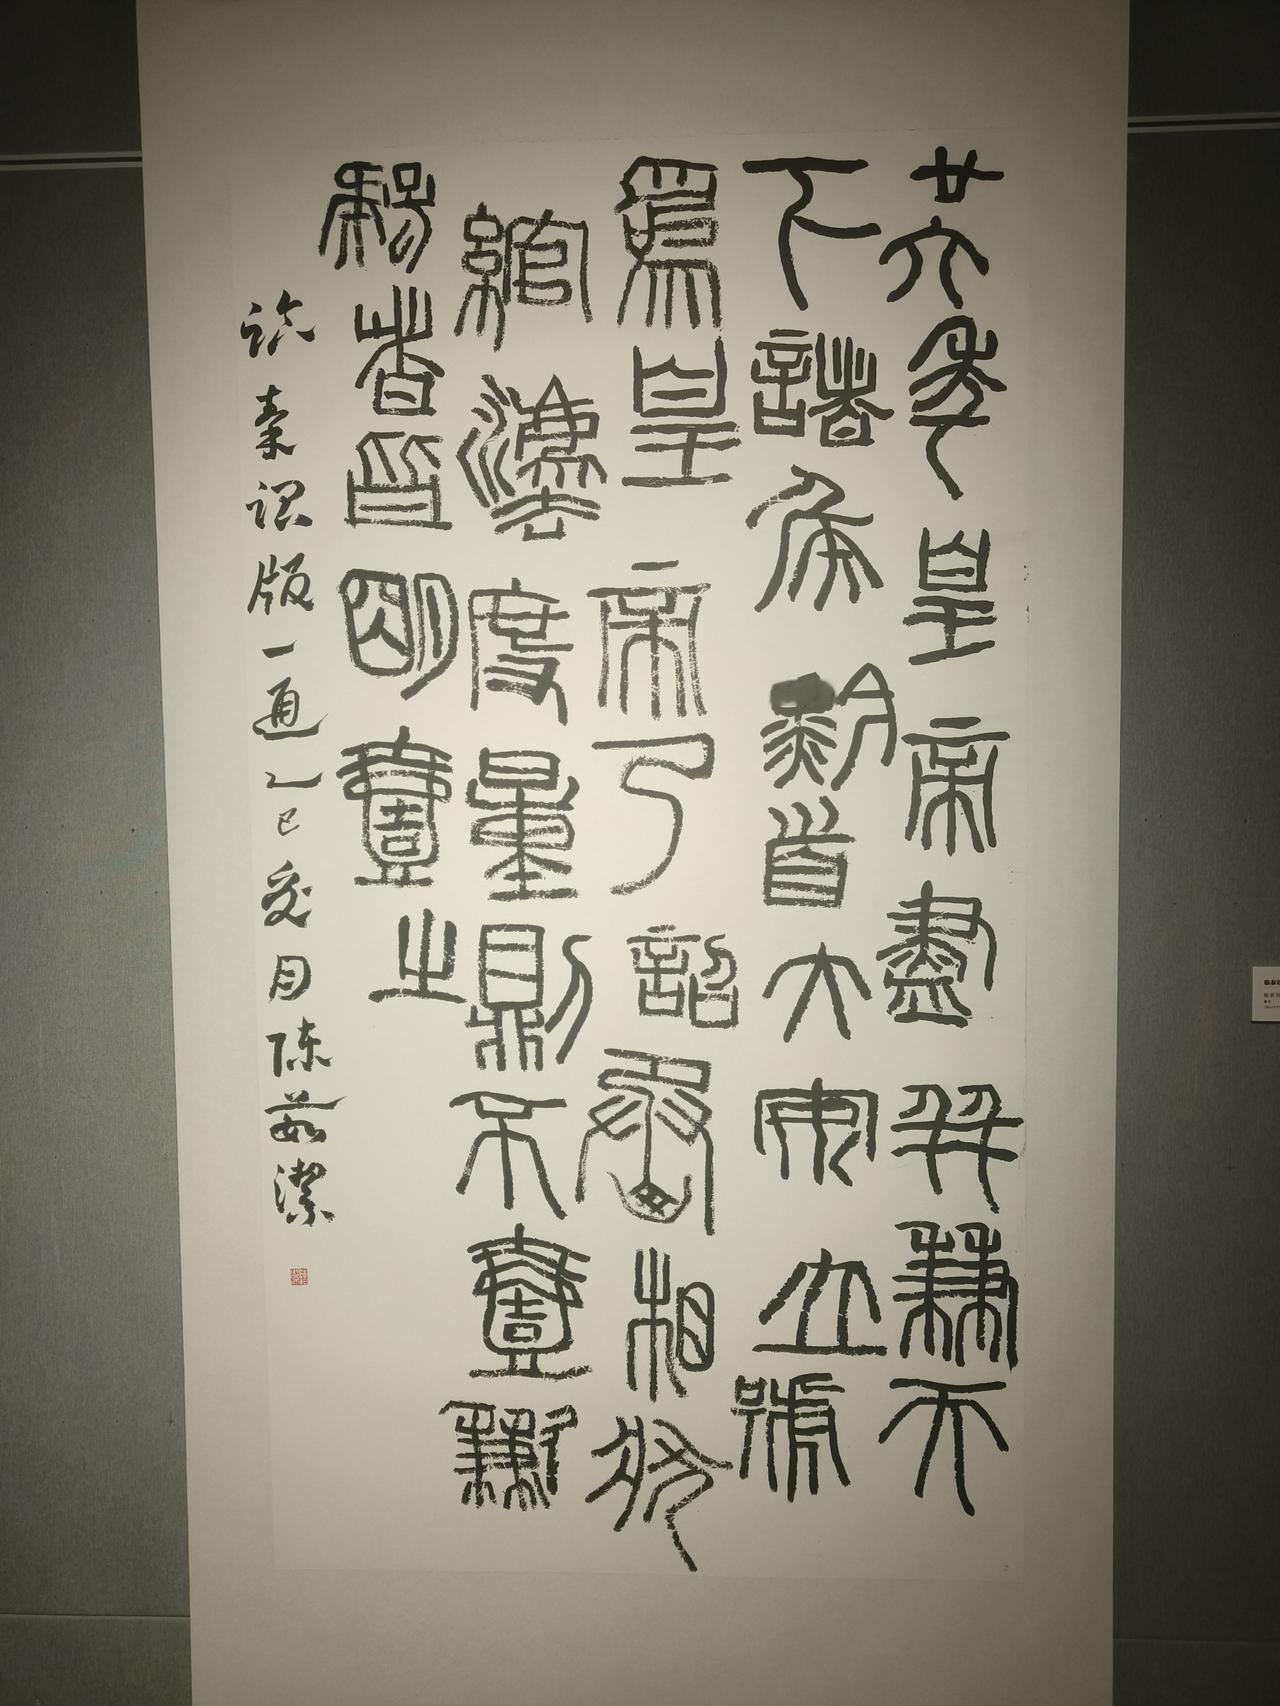 廿六年皇帝盡并兼天
下諸侯黔首大安立號
爲皇帝乃詔丞相狀
綰灋度量則不壹歉
疑者皆明壹之
臨秦詔版一通乙巳冬月陈茹潔